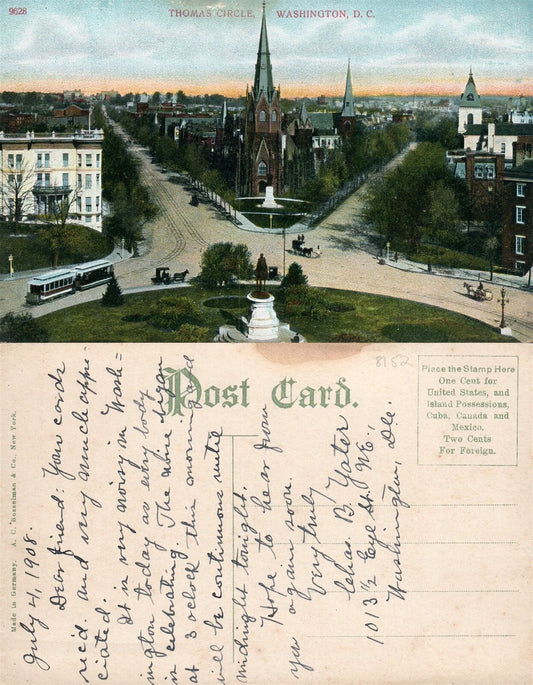 9628
THOMAS CIRCLE, WASHINGTON, D. C.
8152
Post Card.
Place the Stamp Here
One Cent for
United States, and
Island Possessions,
Cuba, Canada and
Mexico.
Two Cents
For Foreign.
Made in Germany. A. C. Bosselman & Co., New York.
July 4, 1908.
Dear friend: Your cards
rec'd. and very much appre=
ciated.
It is very noisy in Wash=
ington today as every body
is celebrating. The noise began
at 3 o'clock this morning and
will be continuous until
midnight tonight.
Hope to hear from
you again soon.
Very truly
Chas. B. Yater
1013½ Eye St. N.E.,
Washington, D.C.